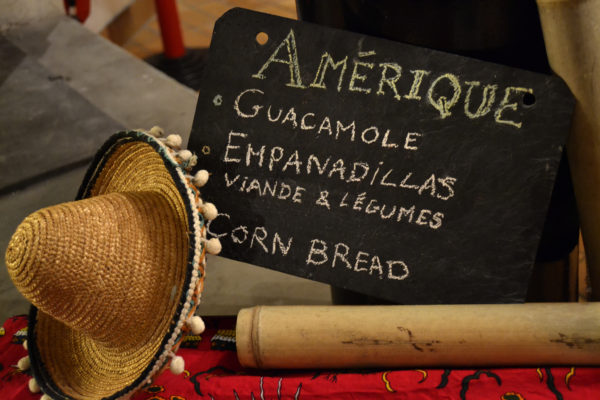 AMÉRIQUE
GUACAMOLE
EMPANADILLAS
VIANDE & LÉGUMES
CORN BREAD